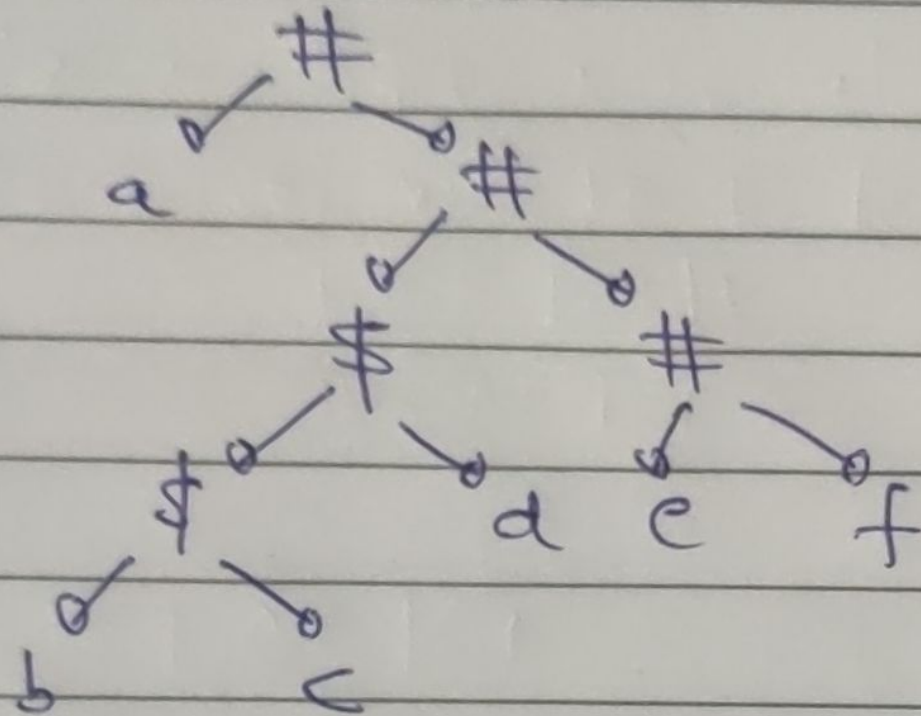 #
a #
$ #
$ d e f
b c